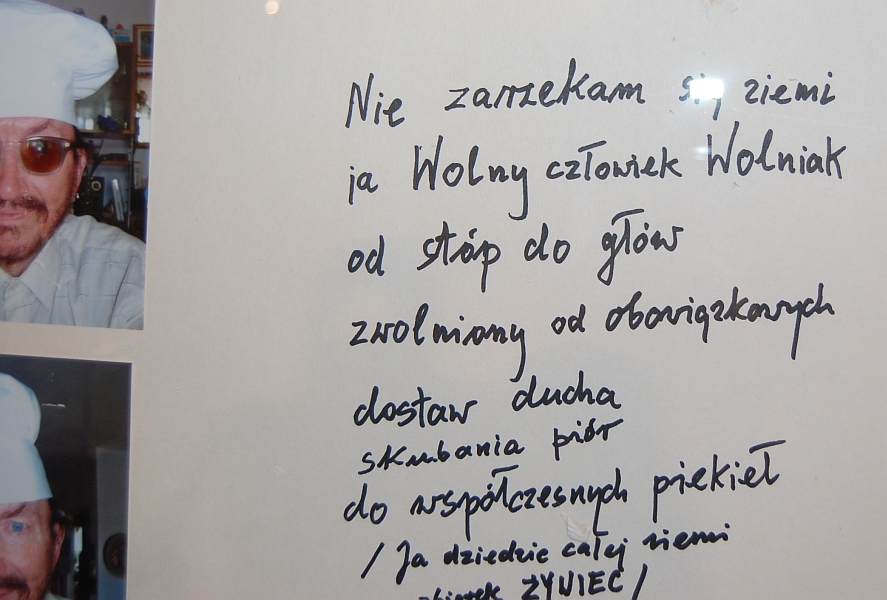 Nie zarzekam się ziemi
ja Wolny człowiek Wolniak
od stóp do głów
zwolniony od obowiązkowych
dostaw ducha
skubania piór
do współczesnych piekieł
/ Ja dziedzic całej ziemi
ŻYWIEC /